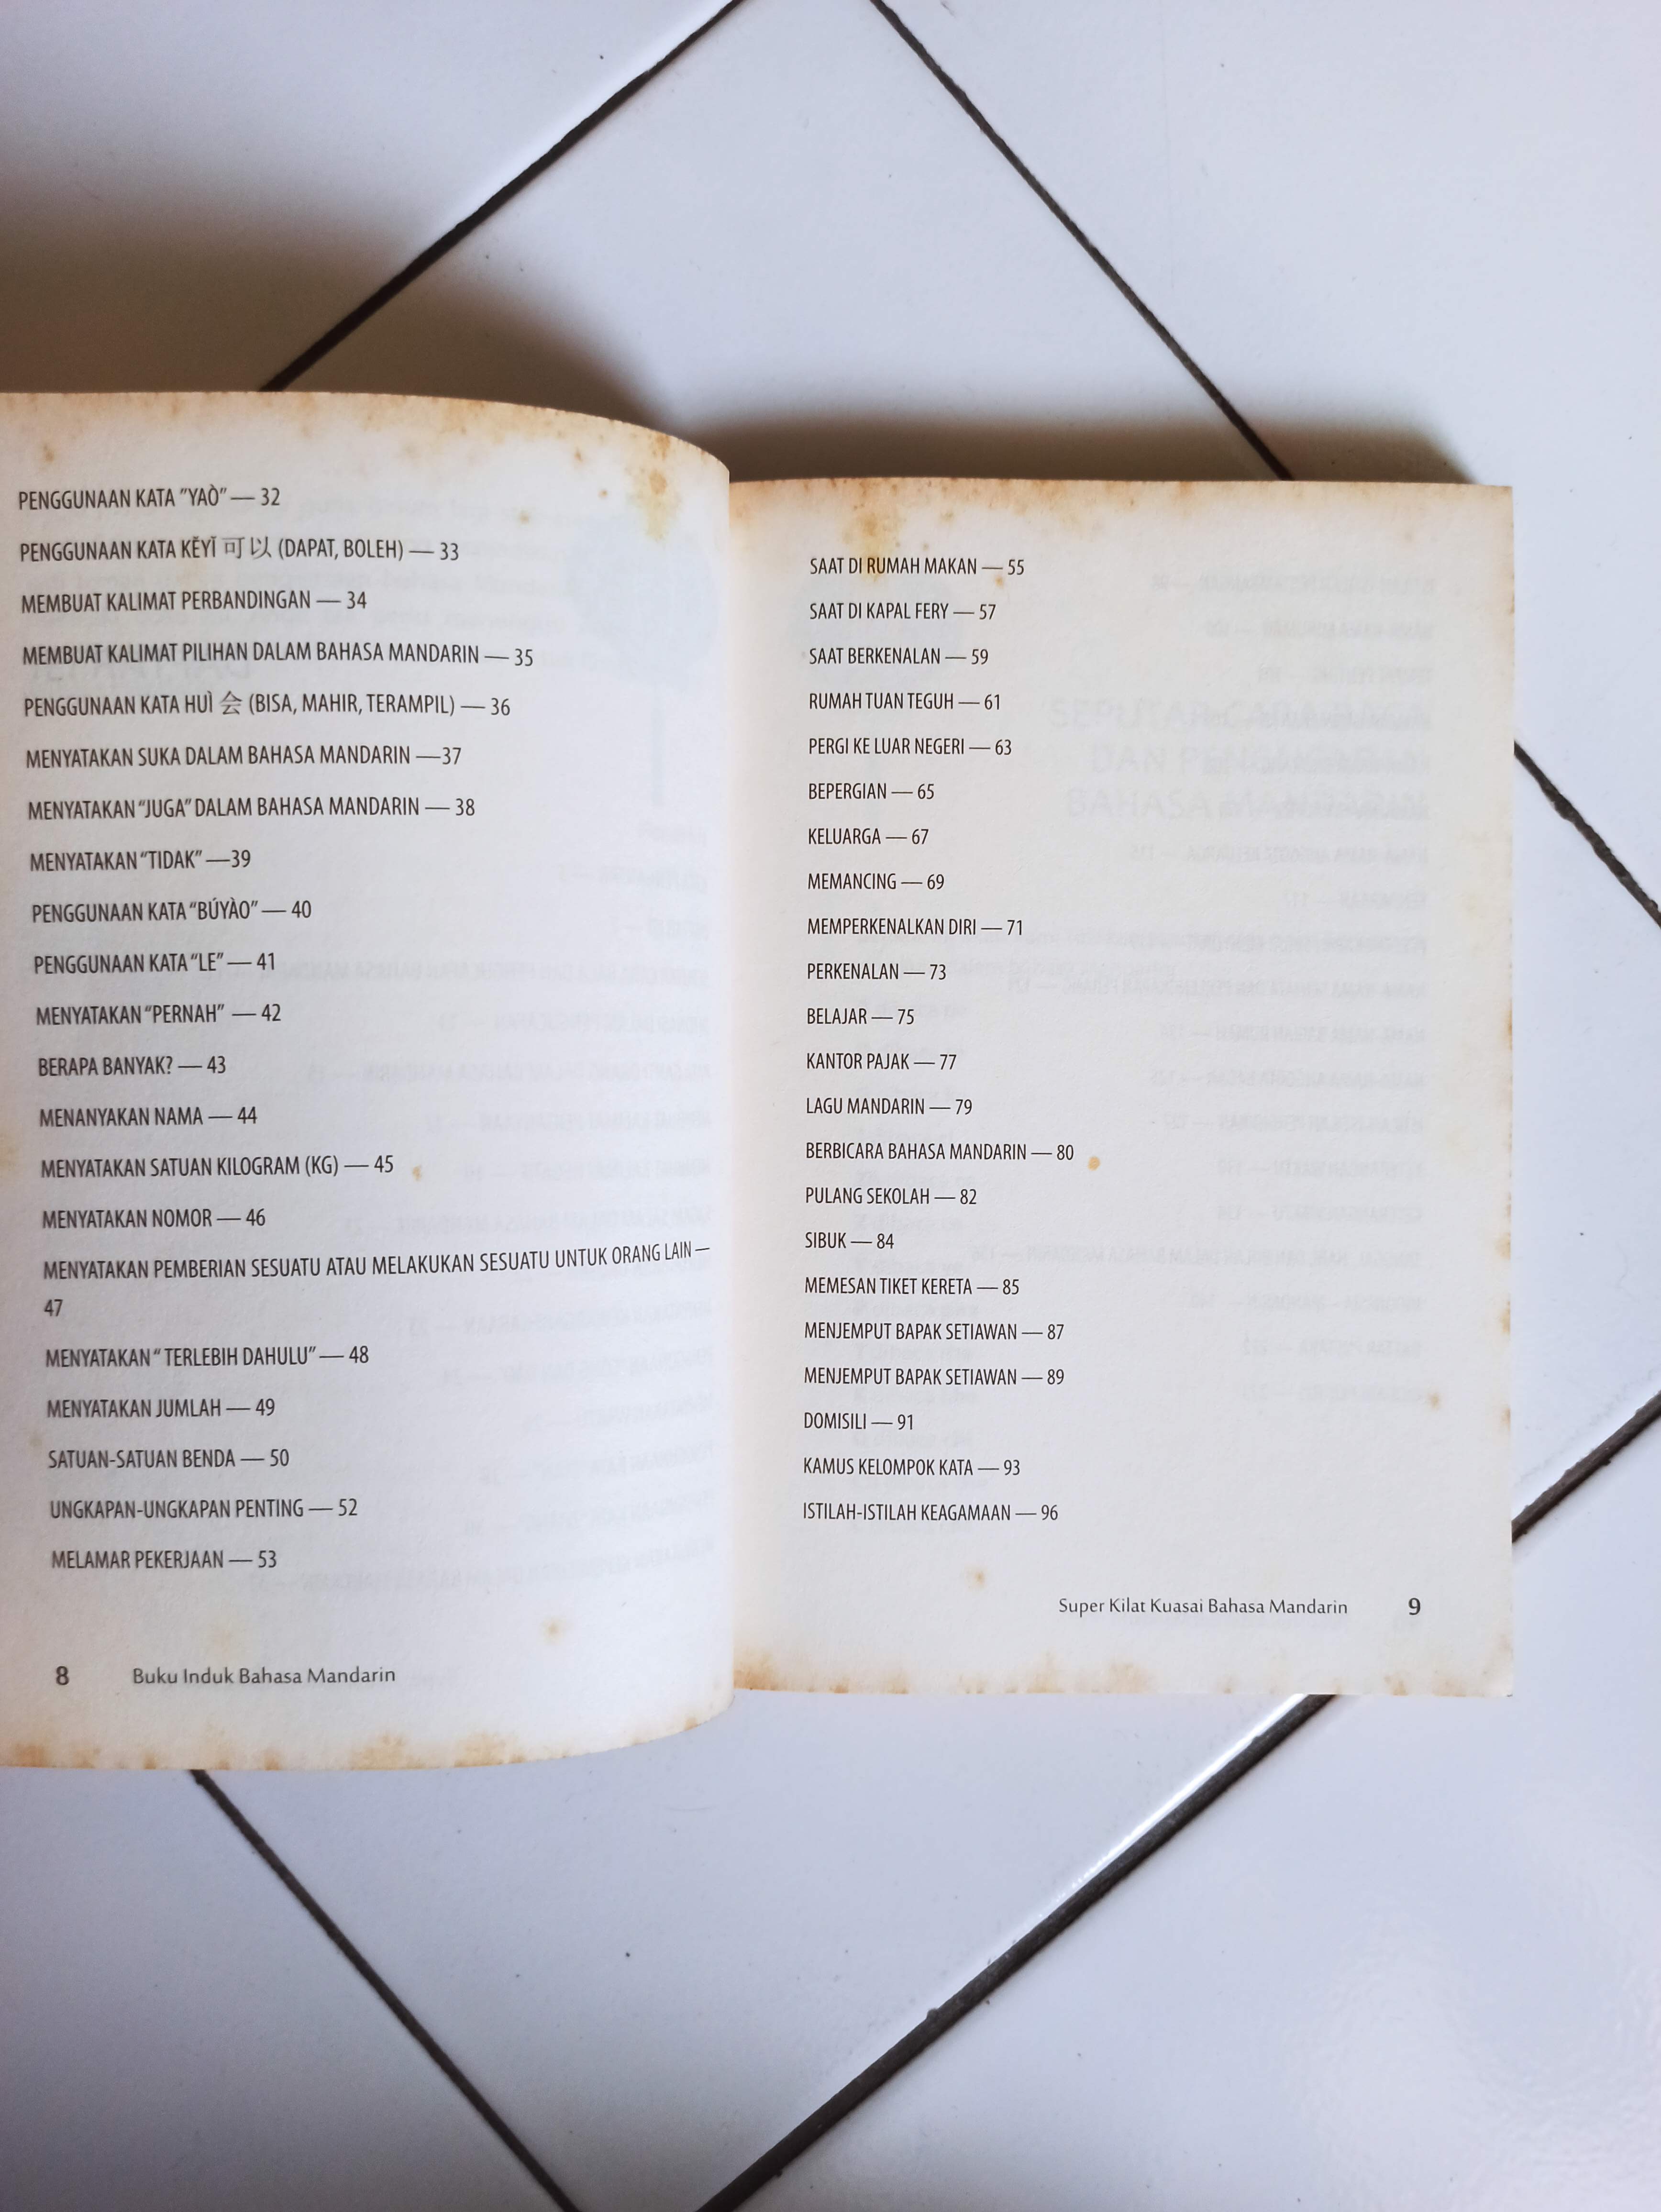 PENGGUNAAN KATA "YAÒ" — 32
PENGGUNAAN KATA KĚYǏ 可以 (DAPAT, BOLEH) — 33
MEMBUAT KALIMAT PERBANDINGAN — 34
MEMBUAT KALIMAT PILIHAN DALAM BAHASA MANDARIN — 35
PENGGUNAAN KATA HUÌ 会 (BISA, MAHIR, TERAMPIL) — 36
MENYATAKAN SUKA DALAM BAHASA MANDARIN —37
MENYATAKAN "JUGA" DALAM BAHASA MANDARIN — 38
MENYATAKAN "TIDAK" —39
PENGGUNAAN KATA "BÚYÀO" — 40
PENGGUNAAN KATA "LE" — 41
MENYATAKAN "PERNAH" — 42
BERAPA BANYAK? — 43
MENANYAKAN NAMA — 44
MENYATAKAN SATUAN KILOGRAM (KG) — 45
MENYATAKAN NOMOR — 46
MENYATAKAN PEMBERIAN SESUATU ATAU MELAKUKAN SESUATU UNTUK ORANG LAIN —
47
MENYATAKAN " TERLEBIH DAHULU" — 48
MENYATAKAN JUMLAH — 49
SATUAN-SATUAN BENDA — 50
UNGKAPAN-UNGKAPAN PENTING — 52
MELAMAR PEKERJAAN — 53
8 Buku Induk Bahasa Mandarin
SAAT DI RUMAH MAKAN — 55
SAAT DI KAPAL FERY — 57
SAAT BERKENALAN — 59
RUMAH TUAN TEGUH — 61
PERGI KE LUAR NEGERI — 63
BEPERGIAN — 65
KELUARGA — 67
MEMANCING — 69
MEMPERKENALKAN DIRI — 71
PERKENALAN — 73
BELAJAR — 75
KANTOR PAJAK — 77
LAGU MANDARIN — 79
BERBICARA BAHASA MANDARIN — 80
PULANG SEKOLAH — 82
SIBUK — 84
MEMESAN TIKET KERETA — 85
MENJEMPUT BAPAK SETIAWAN — 87
MENJEMPUT BAPAK SETIAWAN — 89
DOMISILI — 91
KAMUS KELOMPOK KATA — 93
ISTILAH-ISTILAH KEAGAMAAN — 96
Super Kilat Kuasai Bahasa Mandarin 9